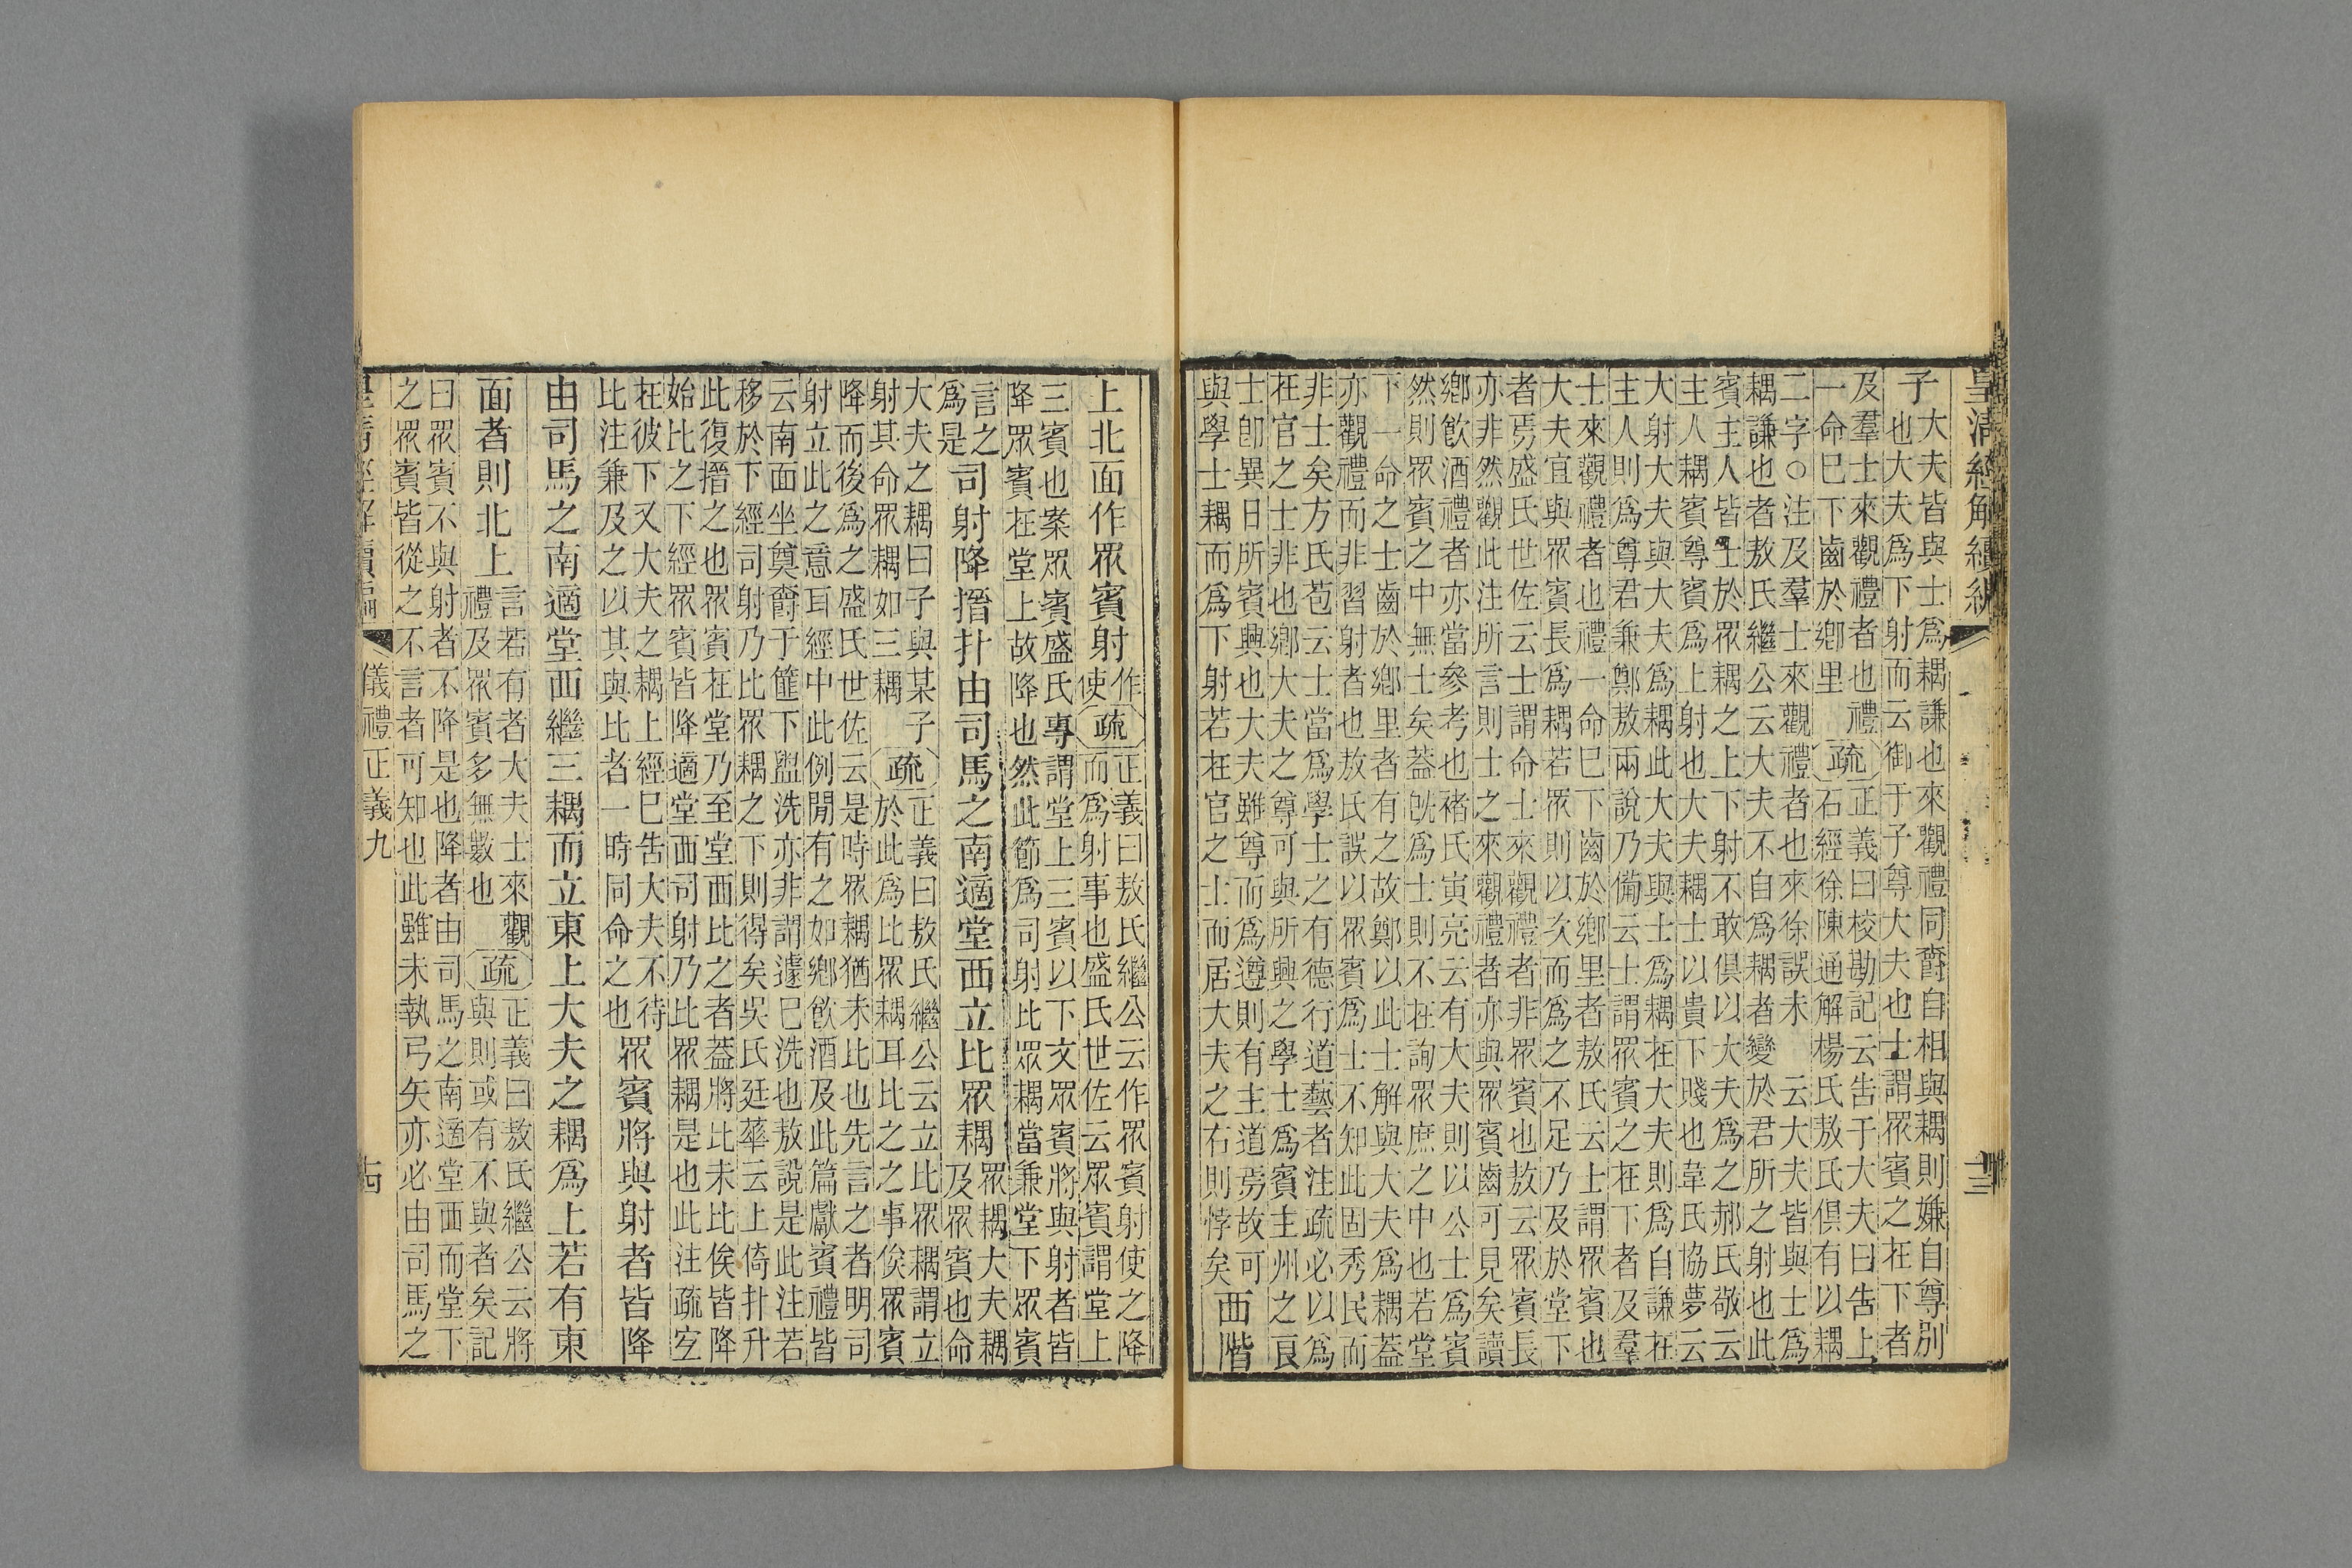 皇清經解續編
十三
子大夫皆與士爲耦謙也來觀禮同爵自相與耦則嫌自尊別
也大夫爲下射而云御于子尊大夫也士謂眾賓之在下者
及羣士來觀禮者也禮
一命巳下齒於鄉里
疏
正義曰校勘記云告于大夫曰告上
石經徐陳通解楊氏敖氏俱有以耦
二字○注及羣士來觀禮者也來徐誤未 云大夫皆與士爲
耦謙也者敖氏繼公云大夫不自爲耦者變於君所之射也此
賓主人皆士於眾耦之上下射不敢俱以大夫爲之郝氏敬云
主人耦賓尊賓爲上射也大夫耦士以貴下賤也韋氏協夢云
大射大夫與大夫爲耦此大夫與士爲耦在大夫則爲自謙在
主人則爲尊君兼鄭敖兩說乃備云士謂眾賓之在下者及羣
士來觀禮者也禮一命巳下齒於鄉里者敖氏云士謂眾賓也
大夫宜與眾賓長爲耦若眾則以次而爲之不足乃及於堂下
者焉盛氏世佐云士謂命士來觀禮者非眾賓也敖云眾賓長
亦非然觀此注所言則士之來觀禮者亦與眾賓齒可見矣讀
鄉飲酒禮者亦當參考也褚氏寅亮云有大夫則以公士爲賓
然則眾賓之中無士矣蓋旣爲士則不在詢眾庶之中也若堂
下一命之士齒於鄉里者有之故鄭以此士解與大夫爲耦蓋
亦觀禮而非習射者也敖氏誤以眾賓爲士不知此固秀民而
非士矣方氏苞云士當爲學士之有德行道藝者注疏必以爲
在官之士非也鄉大夫之尊可與所興之學士爲賓主州之良
士卽異日所賓興也大夫雖尊而爲遵則有主道焉故可
與學士耦而爲下射若在官之士而居大夫之右則悖矣
西階
上北面作眾賓射
作
使
疏
正義曰敖氏繼公云作眾賓射使之降
而爲射事也盛氏世佐云眾賓謂堂上
三賓也案眾賓盛氏專謂堂上三賓以下文眾賓將與射者皆
降眾賓在堂上故降也然此節爲司射比眾耦當兼堂下眾賓
言之
爲是
司射降搢扑由司馬之南適堂西立比眾耦
眾耦大夫耦
及眾賓也命
大夫之耦曰子與某子
射其命眾耦如三耦
疏
正義曰敖氏繼公云立比眾耦謂立
於此爲比眾耦耳比之之事俟眾賓
降而後爲之盛氏世佐云是時眾耦猶未比也先言之者明司
射立此之意耳經中此例閒有之如鄉飲酒及此篇獻賓禮皆
云南面坐奠爵于篚下盥洗亦非謂遽巳洗也敖說是此注若
移於下經司射乃比眾耦之下則得矣吳氏廷華云上倚扑升
此復搢之也眾賓在堂乃至堂西比之者蓋將比未比俟皆降
始比之下經眾賓皆降適堂西司射乃比眾耦是也此注疏空
在彼下又大夫之耦上經巳告大夫不待
比注兼及之以其與比者一時同命之也
眾賓將與射者皆降
由司馬之南適堂西繼三耦而立東上大夫之耦爲上若有東
面者則北上
言若有者大夫士來觀
禮及眾賓多無數也
疏
正義曰敖氏繼公云將
與則或有不與者矣記
曰眾賓不與射者不降是也降者由司馬之南適堂西而堂下
之眾賓皆從之不言者可知也此雖未執弓矢亦必由司馬之
皇清經解續編
儀禮正義九
十四